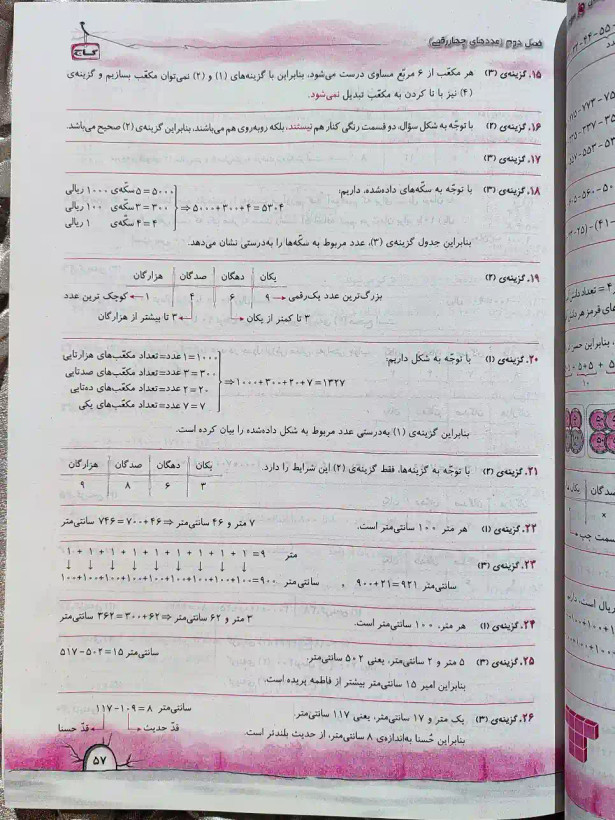 فصل دوم (عددهای چهاررقمی)
گاج
۱۵. گزینه‌ی (۳) هر مکعّب از ۶ مربّع مساوی درست می‌شود، بنابراین با گزینه‌های (۱) و (۲) نمی‌توان مکعّب بسازیم و گزینه‌ی
(۴) نیز با تا کردن به مکعّب تبدیل نمی‌شود.
۱۶. گزینه‌ی (۲) با توجّه به شکل سؤال، دو قسمت رنگی کنار هم نیستند، بلکه روبه‌روی هم می‌باشند، بنابراین گزینه‌ی (۲) صحیح می‌باشد.
۱۷. گزینه‌ی (۳)
۱۸. گزینه‌ی (۳) با توجّه به سکّه‌های داده‌شده، داریم:
۵ سکّه‌ی ۱۰۰۰ ریالی = ۵۰۰۰
۳ سکّه‌ی ۱۰۰ ریالی = ۳۰۰ ⇒ ۵۰۰۰+۳۰۰+۴=۵۳۰۴
۴ سکّه‌ی ۱ ریالی = ۴
بنابراین جدول گزینه‌ی (۳)، عدد مربوط به سکّه‌ها را به‌درستی نشان می‌دهد.
۱۹. گزینه‌ی (۲)
یکان دهگان صدگان هزارگان
بزرگ‌ترین عدد یک‌رقمی → ۹ ۶ ۴ ۱ ← کوچک ترین عدد
۳ تا کمتر از یکان ۳ تا بیشتر از هزارگان
۲۰. گزینه‌ی (۱) با توجّه به شکل داریم:
تعداد مکعّب‌های هزارتایی = ۱ عدد = ۱۰۰۰
تعداد مکعّب‌های صدتایی = ۳ عدد = ۳۰۰
تعداد مکعّب‌های ده‌تایی = ۲ عدد = ۲۰
تعداد مکعّب‌های یکی = ۷ عدد = ۷
⇒ ۱۰۰۰+۳۰۰+۲۰+۷=۱۳۲۷
بنابراین گزینه‌ی (۱) به‌درستی عدد مربوط به شکل داده‌شده را بیان کرده است.
۲۱. گزینه‌ی (۲) با توجّه به گزینه‌ها، فقط گزینه‌ی (۲) این شرایط را دارد.
یکان دهگان صدگان هزارگان
۳ ۶ ۸ ۹
۲۲. گزینه‌ی (۱) هر متر ۱۰۰ سانتی‌متر است. ۷ متر و ۴۶ سانتی‌متر ⇒ ۷۰۰+۴۶=۷۴۶ سانتی‌متر
۲۳. گزینه‌ی (۳)
۱+۱+۱+۱+۱+۱+۱+۱+۱ = ۹ متر
۱۰۰+۱۰۰+۱۰۰+۱۰۰+۱۰۰+۱۰۰+۱۰۰+۱۰۰+۱۰۰=۹۰۰ سانتی‌متر , ۹۰۰+۲۱=۹۲۱ سانتی‌متر
۲۴. گزینه‌ی (۱) هر متر، ۱۰۰ سانتی‌متر است. ۳ متر و ۶۲ سانتی‌متر ⇒ ۳۰۰+۶۲=۳۶۲ سانتی‌متر
۲۵. گزینه‌ی (۳) ۵ متر و ۲ سانتی‌متر، یعنی ۵۰۲ سانتی‌متر. ۵۱۷-۵۰۲=۱۵ سانتی‌متر
بنابراین امیر ۱۵ سانتی‌متر بیشتر از فاطمه پریده است.
۲۶. گزینه‌ی (۳) یک متر و ۱۷ سانتی‌متر، یعنی ۱۱۷ سانتی‌متر. ۱۱۷-۱۰۹=۸ سانتی‌متر
قدّ حدیث قدّ حسنا
بنابراین حُسنا به‌اندازه‌ی ۸ سانتی‌متر، از حدیث بلندتر است.
۵۷